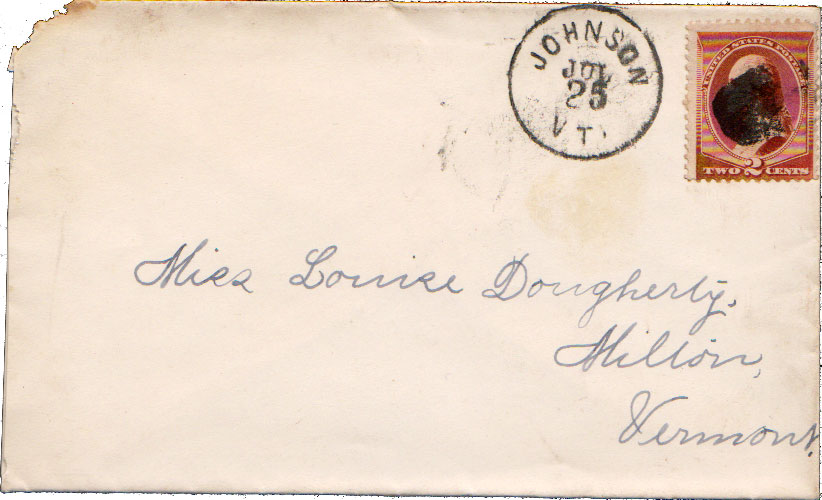 JOHNSON
JUL
25
VT.
UNITED STATES POSTAGE
TWO 2 CENTS
Miss Louise Dougherty,
Milton,
Vermont.